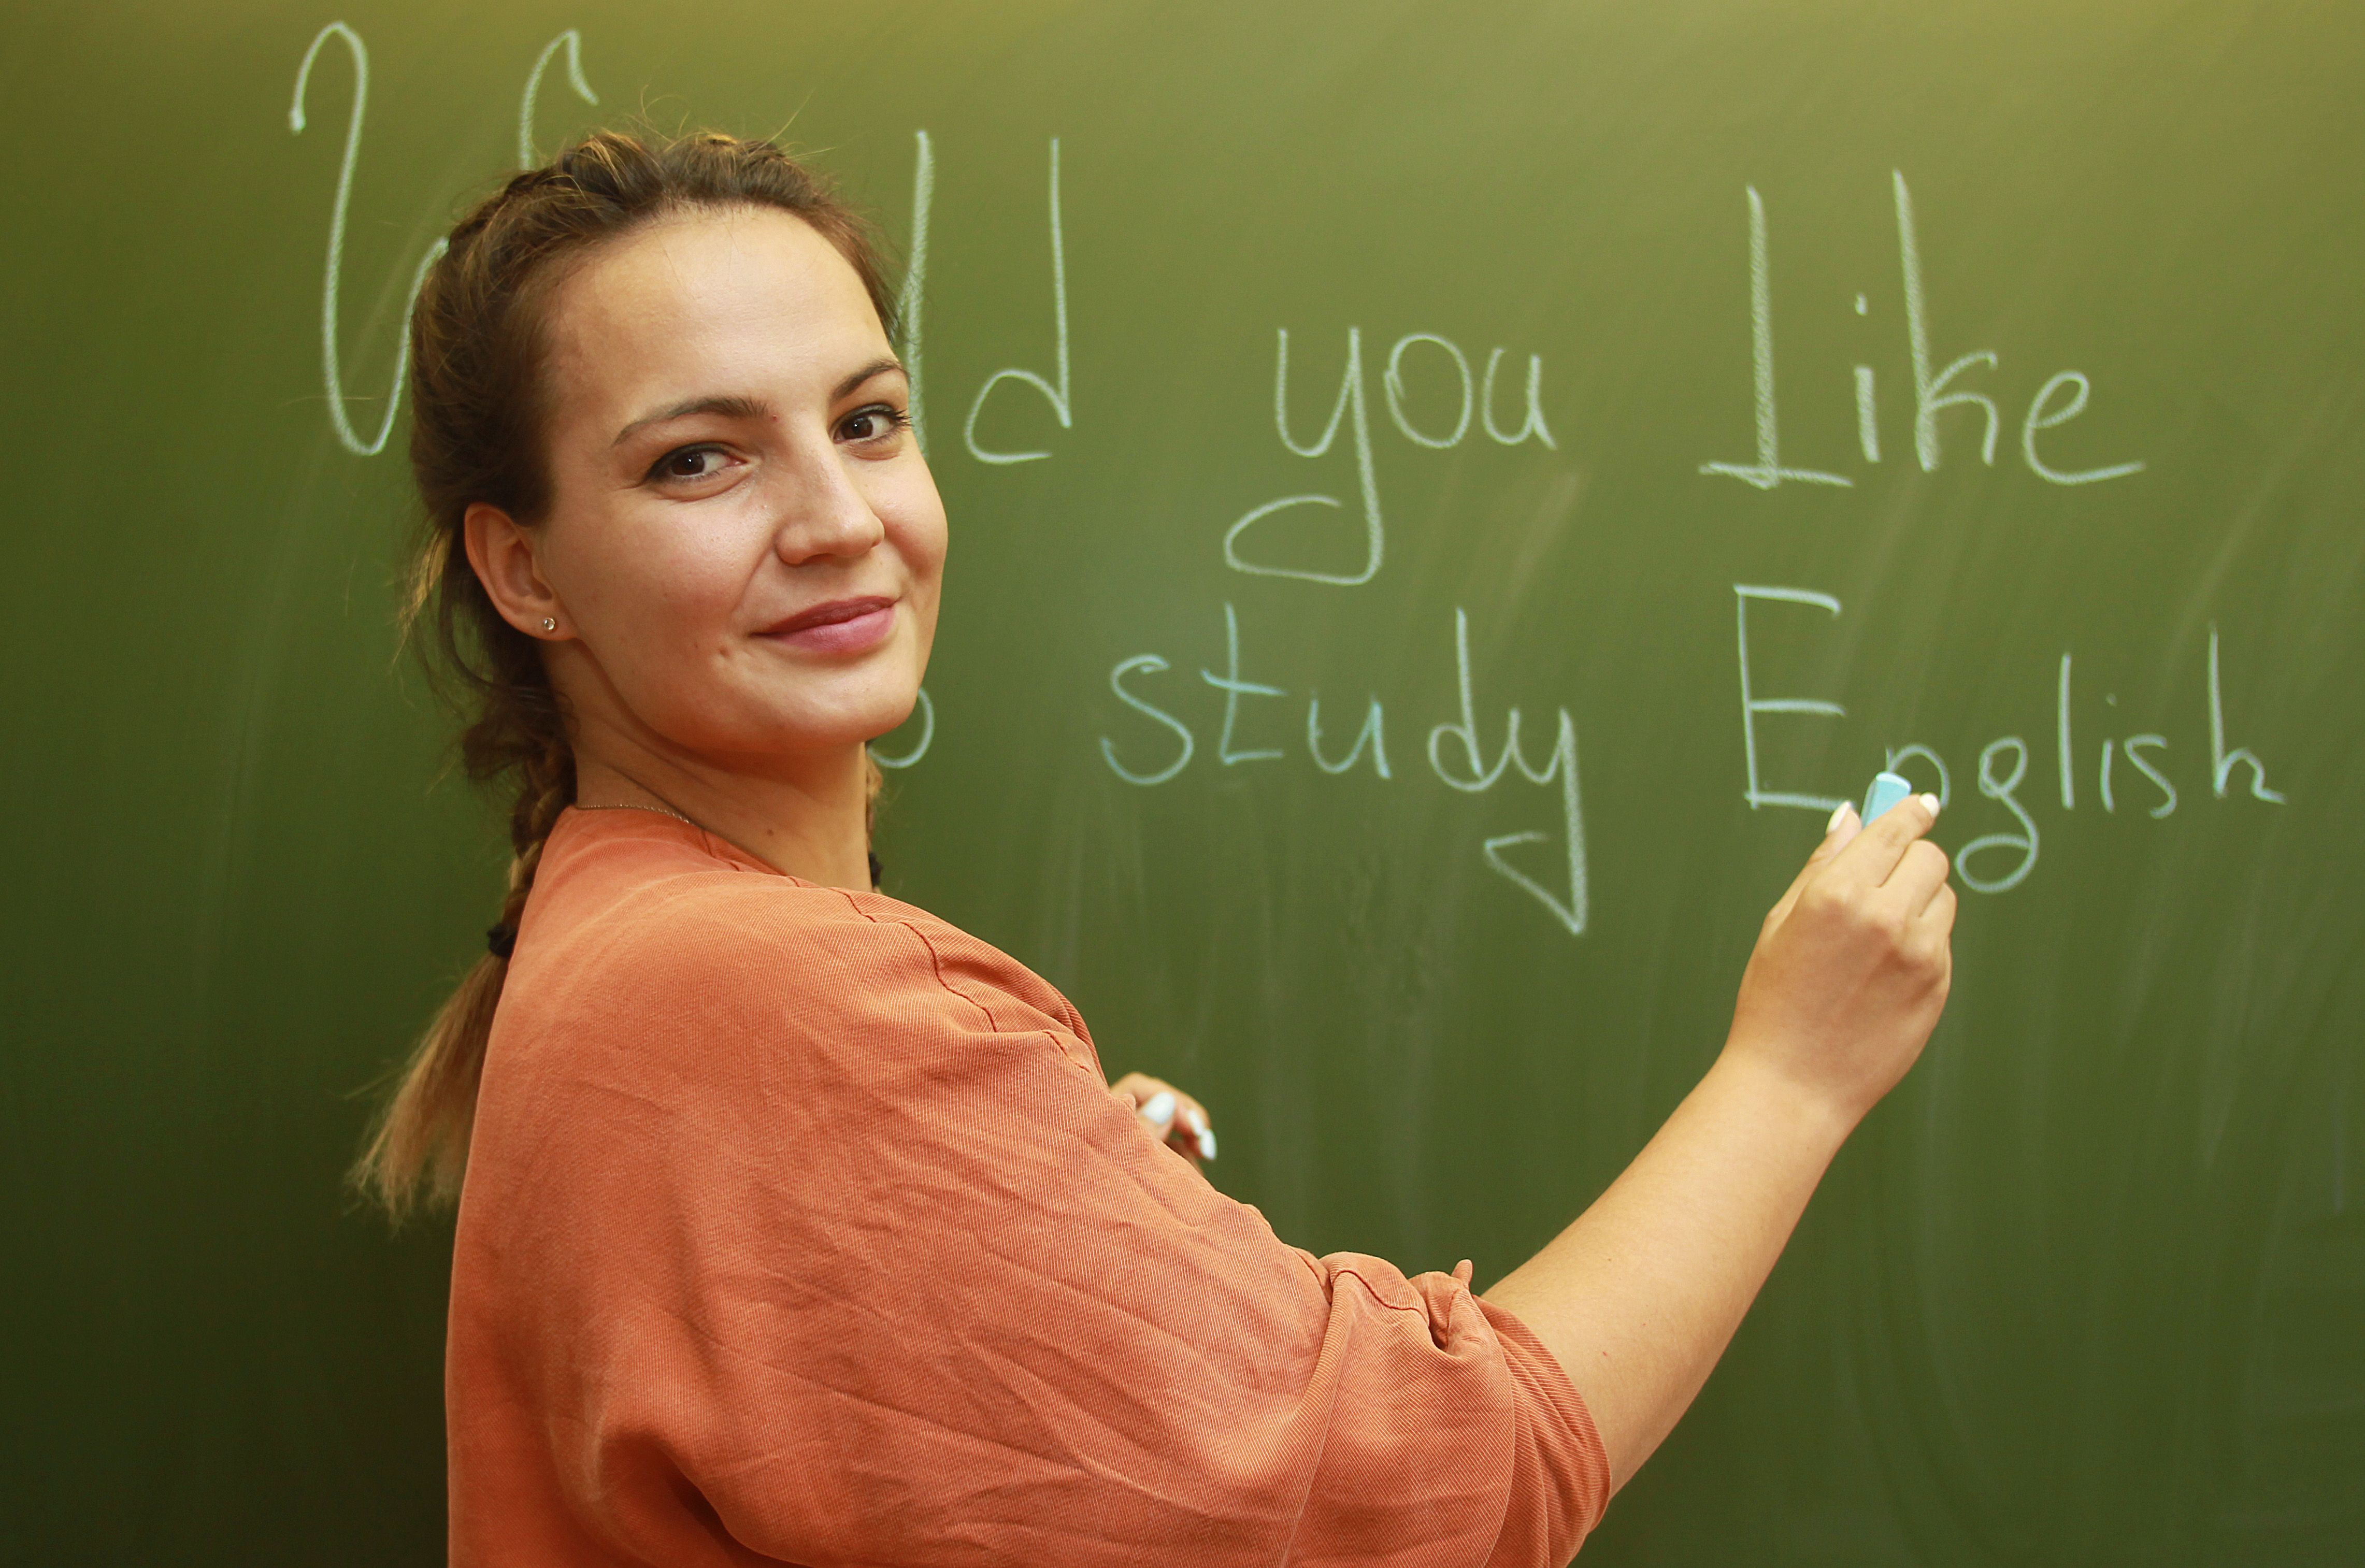 Would you like
to study English